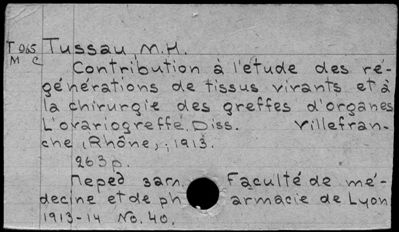 T 965 Tussau, M.H.
M C
Contribution à l'étude des ré-
générations de tissus virants et à
la chirurgie des greffes d'organes
L'ovariogreffe. Diss. Villefran-
che (Rhône), 1913.
263 p.
Перед загл. Faculté de mé-
decine et de pharmacie de Lyon
1913-14 No. 40.